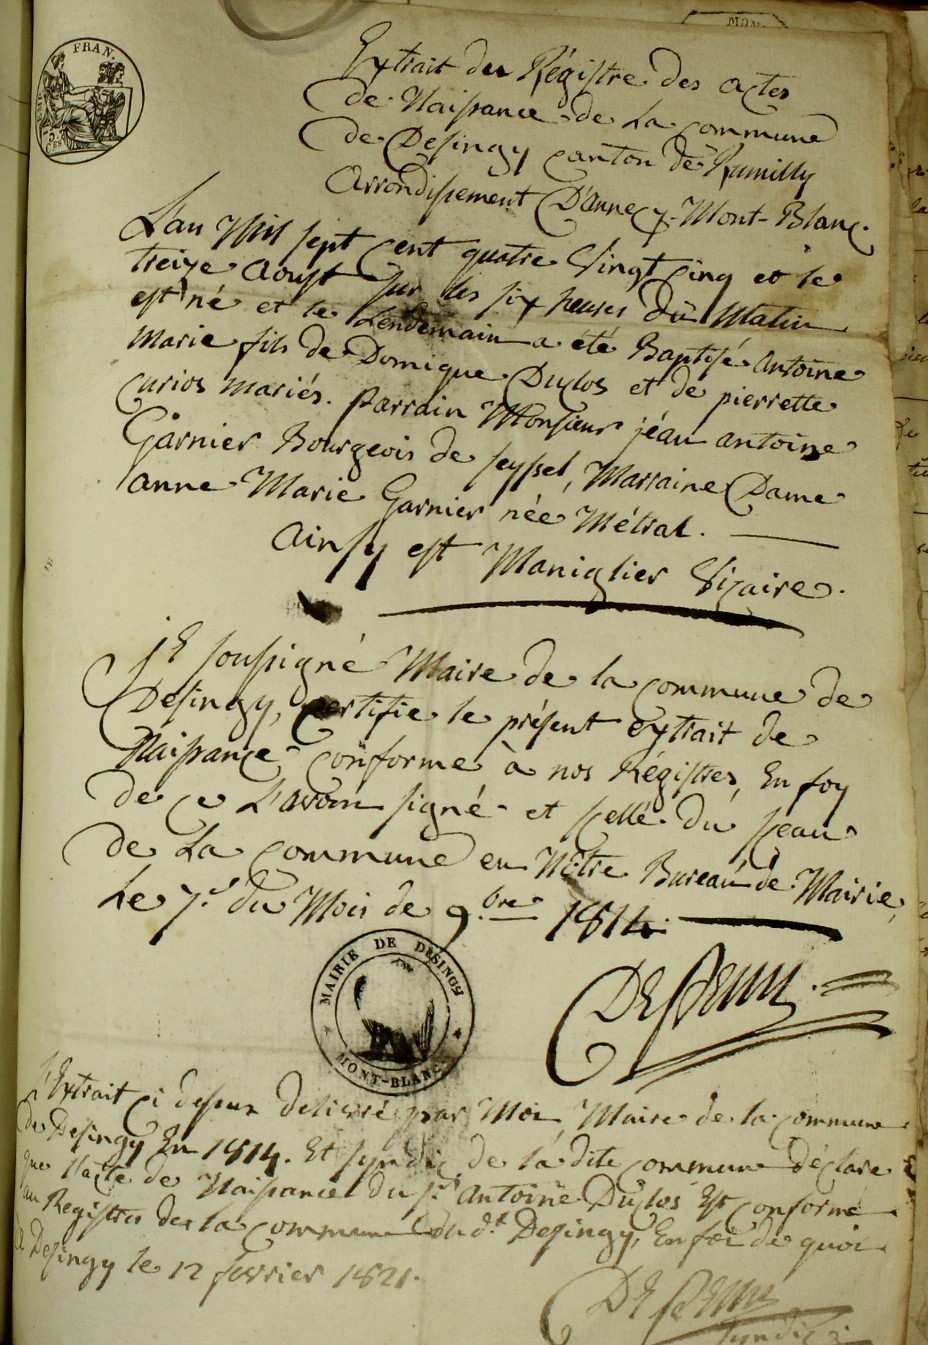 FRAN.
MON
Extrait des Régistre des actes
de Naissance de La commune
de Desingy canton de Rumilly
Arrondissement D'annecy-Mont-Blanc.
Lan Mil sept cent quatre Vingt cinq et le
treize aoust sur les six heures du Matin
est né et le Lendemain a été Baptisé antoine
Marie fils de Domique Duclos et de pierrette
curios mariés. parrain Monsieur jéan antoine
Garnier Bourgeois de seyssel, Marraine Dame
anne Marie Garnier née Métral.
ainsy est Maniglier Vicaire.
jE soussigné Maire de la commune de
Desingy, certifie le présent extrait de
Naissance conforme à nos Régistres, En foy
de ce L'avons signé et scellé du sceau
de La commune en Nôtre Bureau de Mairie,
Le 7.e du Mois de 9.bre 1814.
MAIRIE DE DESINGY
MONT-BLANC
L'Extrait ci dessus delivré par Moi Maire de la commune
de Desingy En 1814. Et syndic de la dite commune déclare
que l'acte de Naissance du s.r Antoine Duclos Est conforme
au Registre de la commune du d.t Desingy, En foi de quoi
A Desingy le 12 fevrier 1821.
syndic